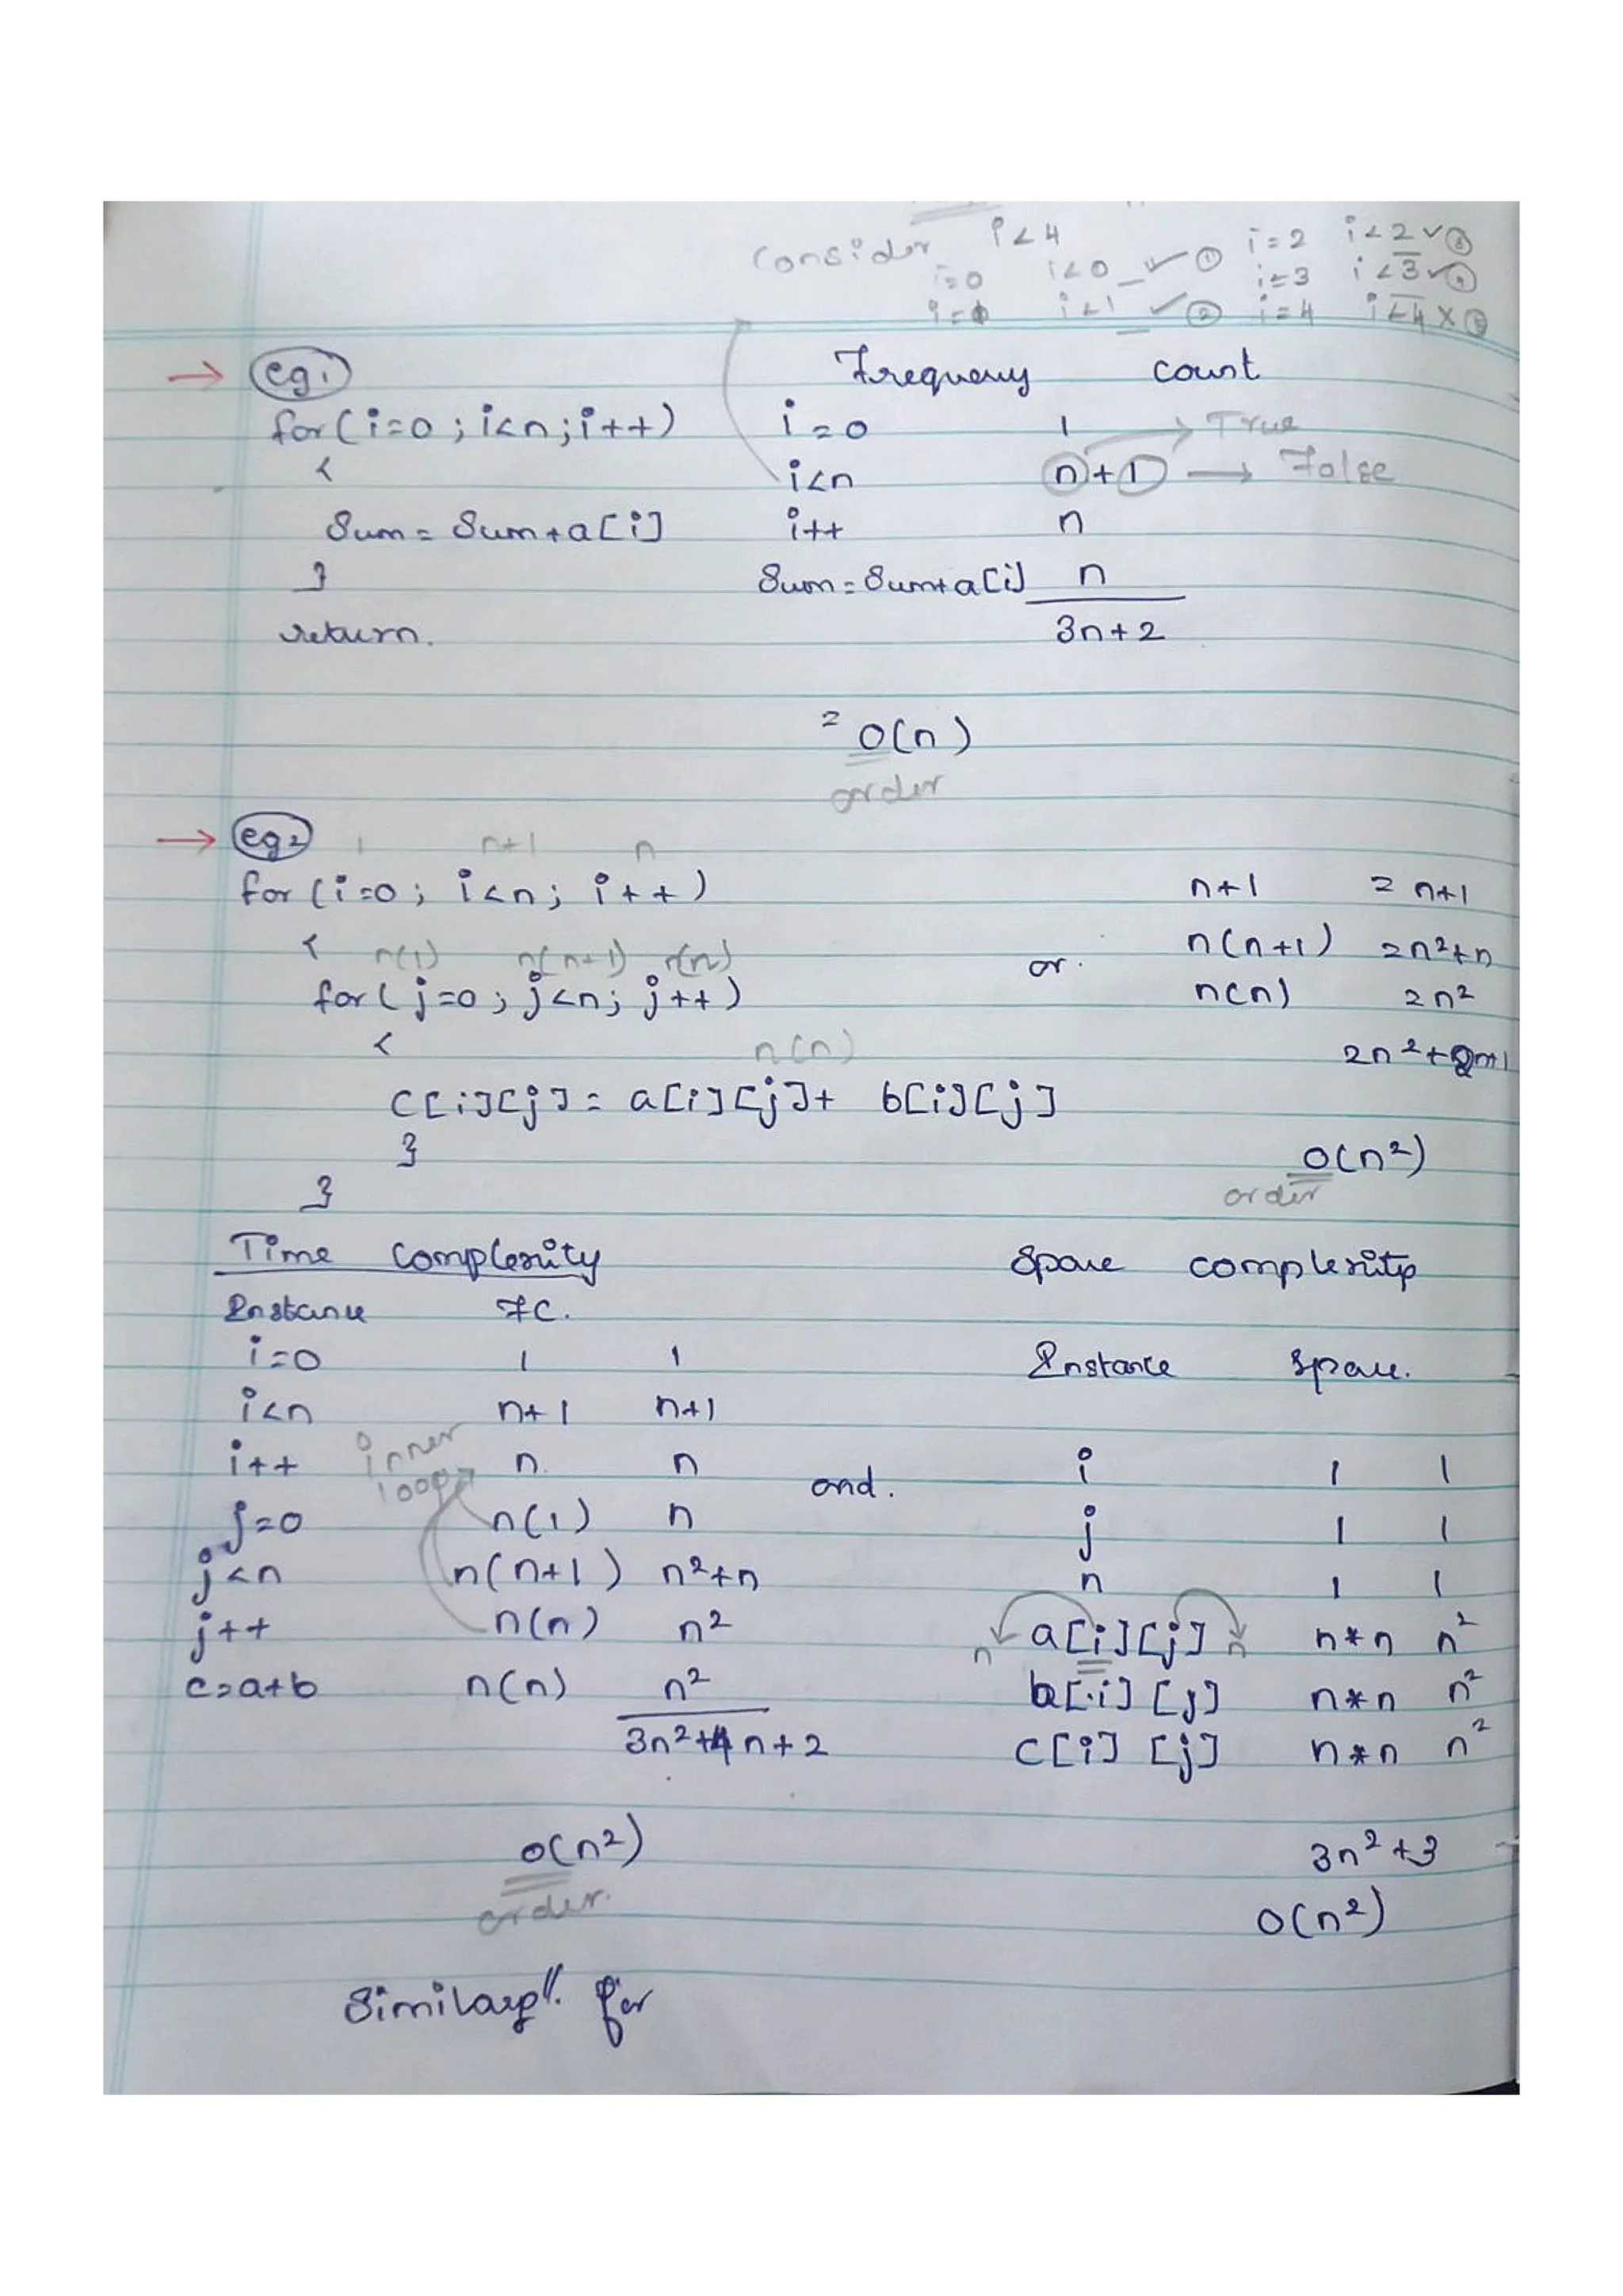 Consider i<4 i=2 i<2 ✓ ③
i=0 i<0 ✓ ① i=3 i<3 ✓ ④
i=1 i<1 ✓ ② i=4 i<4 × ⑤
→ eg1 Frequency count
for(i=0 ; i<n ; i++) i=0 1 → True
{ i<n n+1 → False
Sum = Sum+a[i] i++ n
} Sum = Sum+a[i] n
return. 3n+2
= O(n)
order
→ eg2 1 n+1 n
for(i=0 ; i<n; i++) n+1 = n+1
{ n(1) n(n+1) n(n) or. n(n+1) = n²+n
for( j=0 ; j<n; j++) n(n) = n²
{ n(n) 2n²+2n+1
C[i][j] = a[i][j]+ b[i][j]
} O(n²)
} order
Time complexity Space complexity
Instance FC.
i=0 1 1 Instance Space.
i<n n+1 n+1
i++ inner loop n n and. i 1 1
j=0 n(1) n j 1 1
j<n n(n+1) n²+n n 1 1
j++ n(n) n² n a[i][j] n n*n n²
c=a+b n(n) n² b[i][j] n*n n²
3n²+4n+2 C[i][j] n*n n²
O(n²) 3n²+3
order. O(n²)
Similarly for